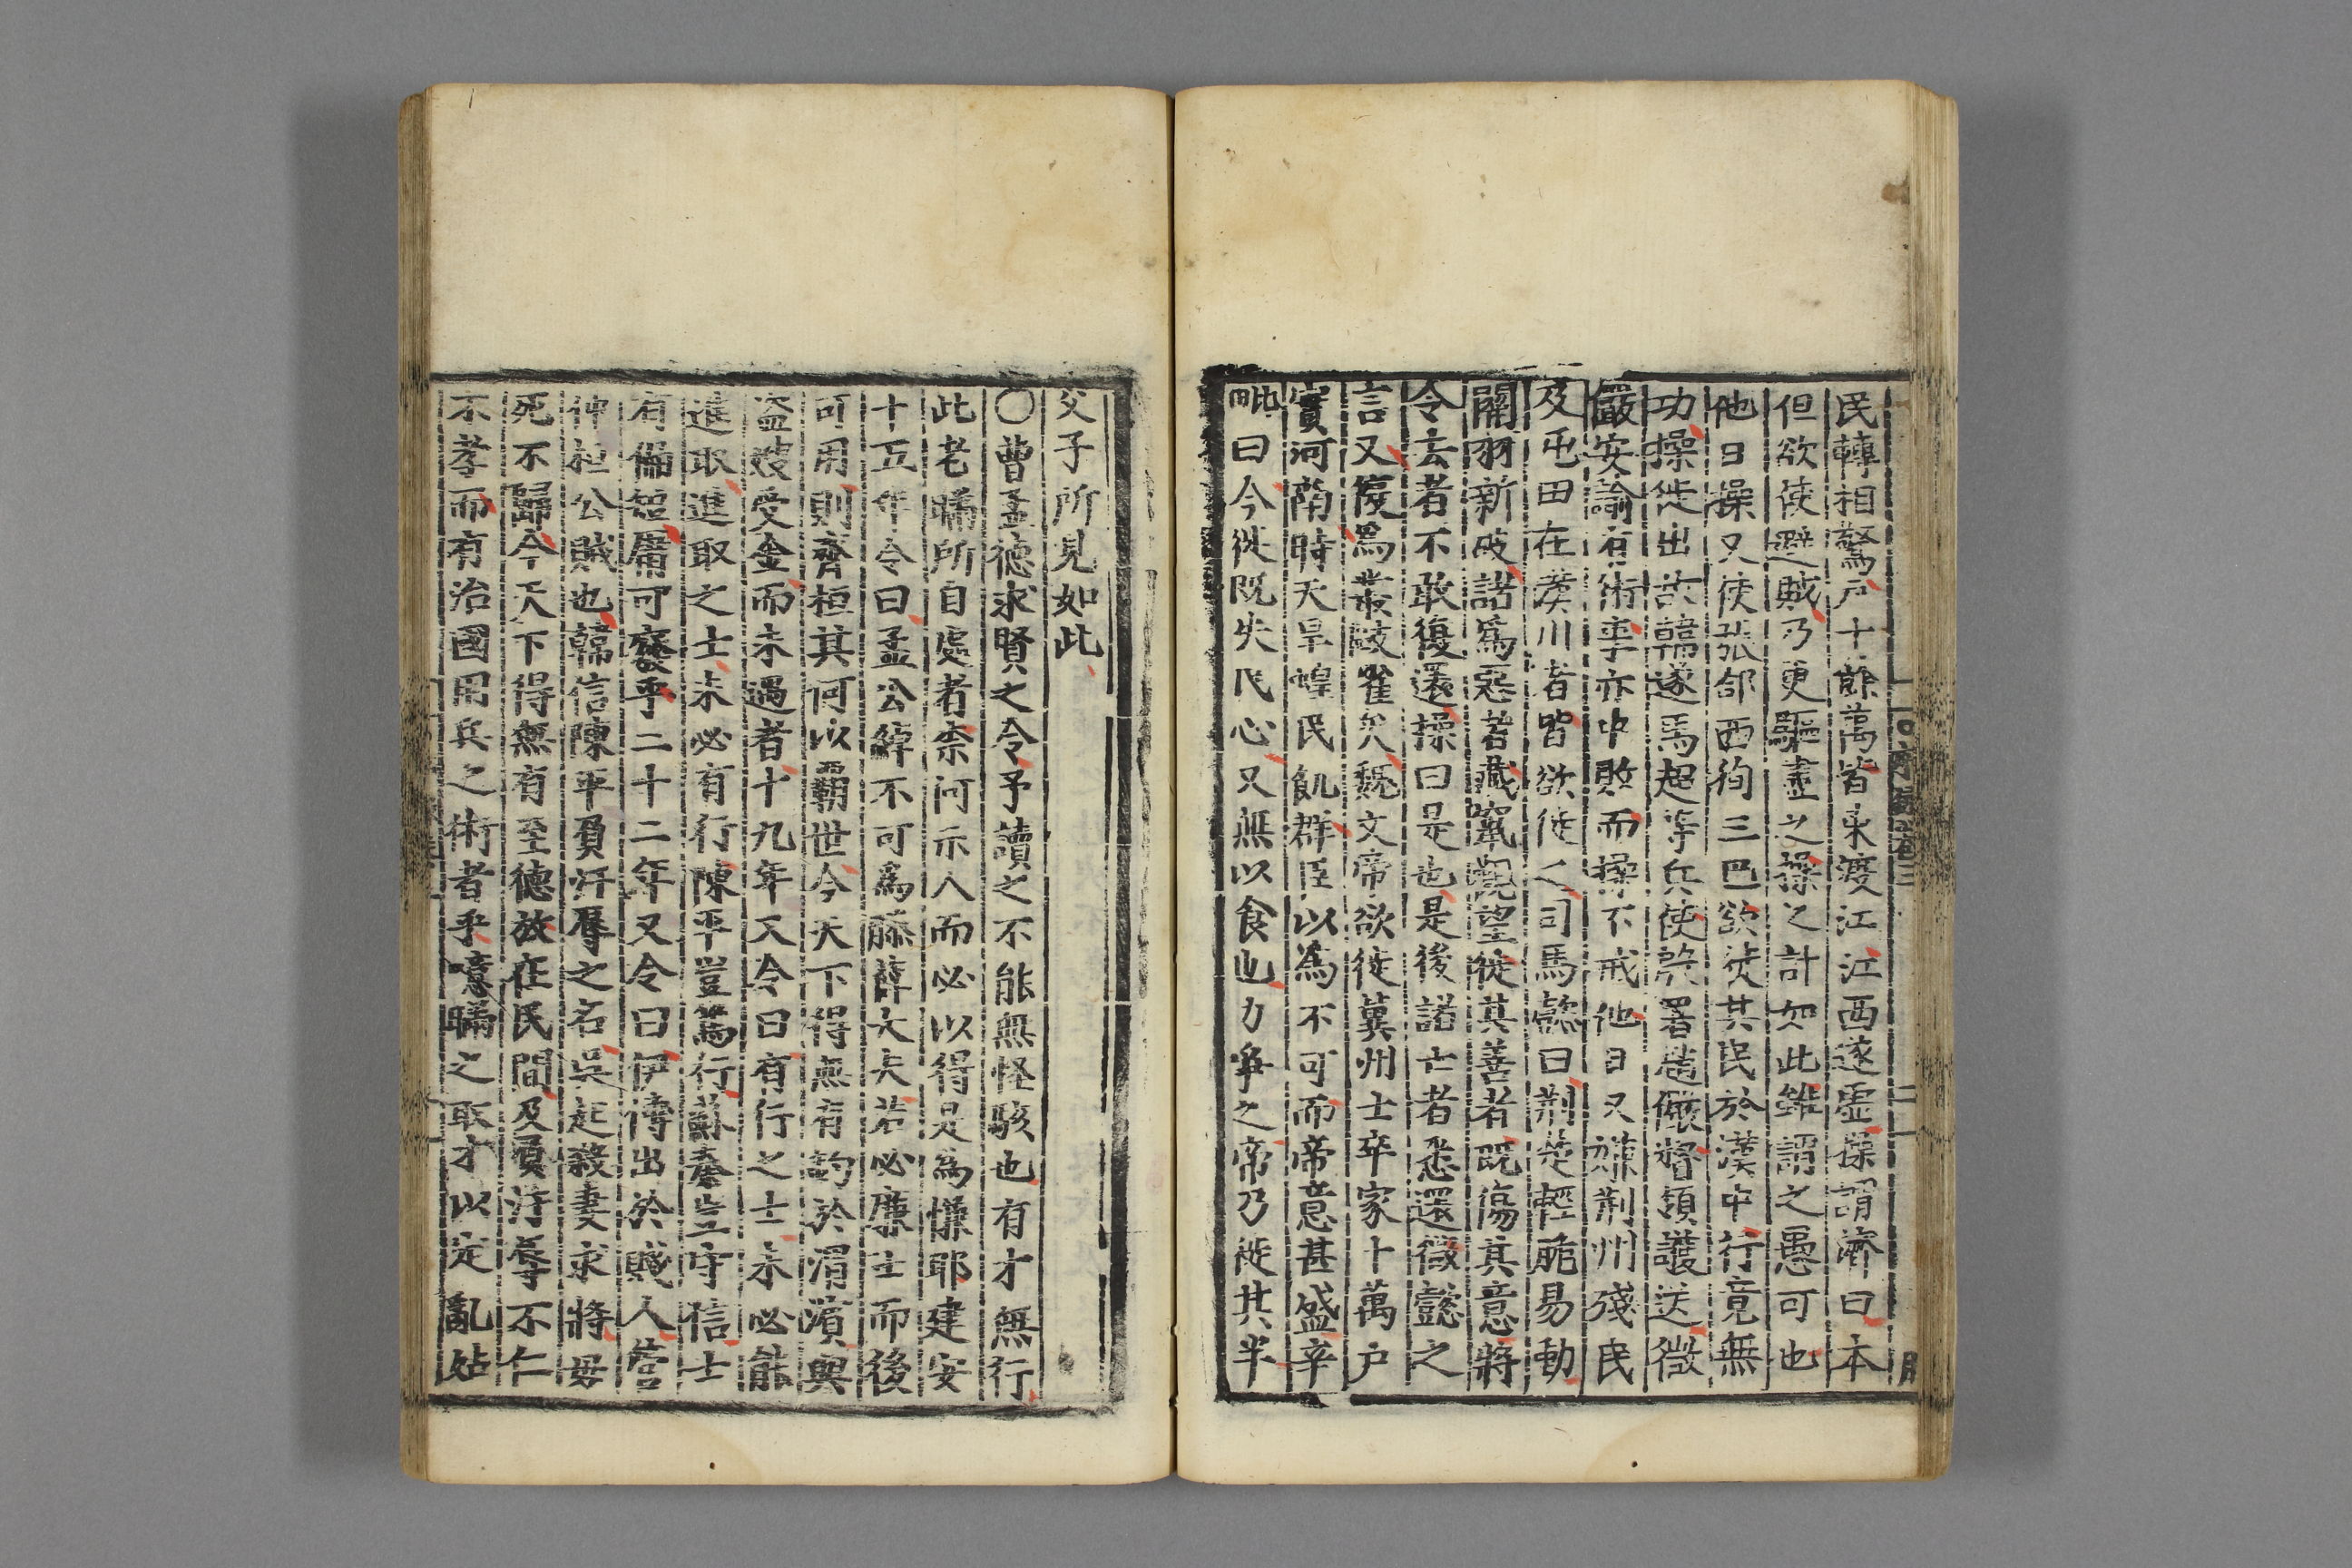 民轉相驚戶十餘萬皆東渡江江西遂虛操謂濟曰本
但欲使避賊乃更驅盡之操之計如此雖謂之愚可也
他日操又使張郃西徇三巴欲徙其民於漢中行竟無
功操徙出故韓遂馬超等兵使殷署趙儼督領護送微
儼安諭有術事亦中敗而操不戒他日又嫌荆州殘民
及屯田在漢川者皆欲徙之司馬懿曰荆楚輕脆易動
關羽新破諸爲惡者藏竄觀望徙其善者既傷其意將
令去者不敢復還操曰是也是後諸亡者悉還微懿之
言又復爲叢敺雀矣魏文帝欲徙冀州士卒家十萬戶
實河南時天旱蝗民飢群臣以為不可而帝意甚盛辛
毗曰今徙既失民心又無以食也力爭之帝乃徙其半
父子所見如此
〇曹孟德求賢之令予讀之不能無怪駭也有才無行
此老瞞所自處者柰何示人而必以得是為慊耶建安
十五年令曰孟公綽不可爲滕薛大夫若必廉士而後
可用則齊桓其何以霸世今天下得無有釣於渭濱與
盗嫂受金而未遇者十九年又令曰有行之士未必能
進取進取之士未必有行陳平豈篤行蘇秦豈守信士
有偏短庸可廢乎二十二年又令曰伊傅出於賤人管
仲桓公賊也韓信陳平負汙辱之名吳起殺妻求將母
死不歸今天下得無有至德放在民間及負汙辱不仁
不孝而有治國用兵之術者乎噫瞞之取才以定亂姑